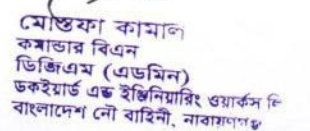 মোস্তফা কামাল
কমান্ডার বিএন
ডিজিএম (এডমিন)
ডকইয়ার্ড এন্ড ইঞ্জিনিয়ারিং ওয়ার্কস লি
বাংলাদেশ নৌ বাহিনী, নারায়ণগঞ্জ